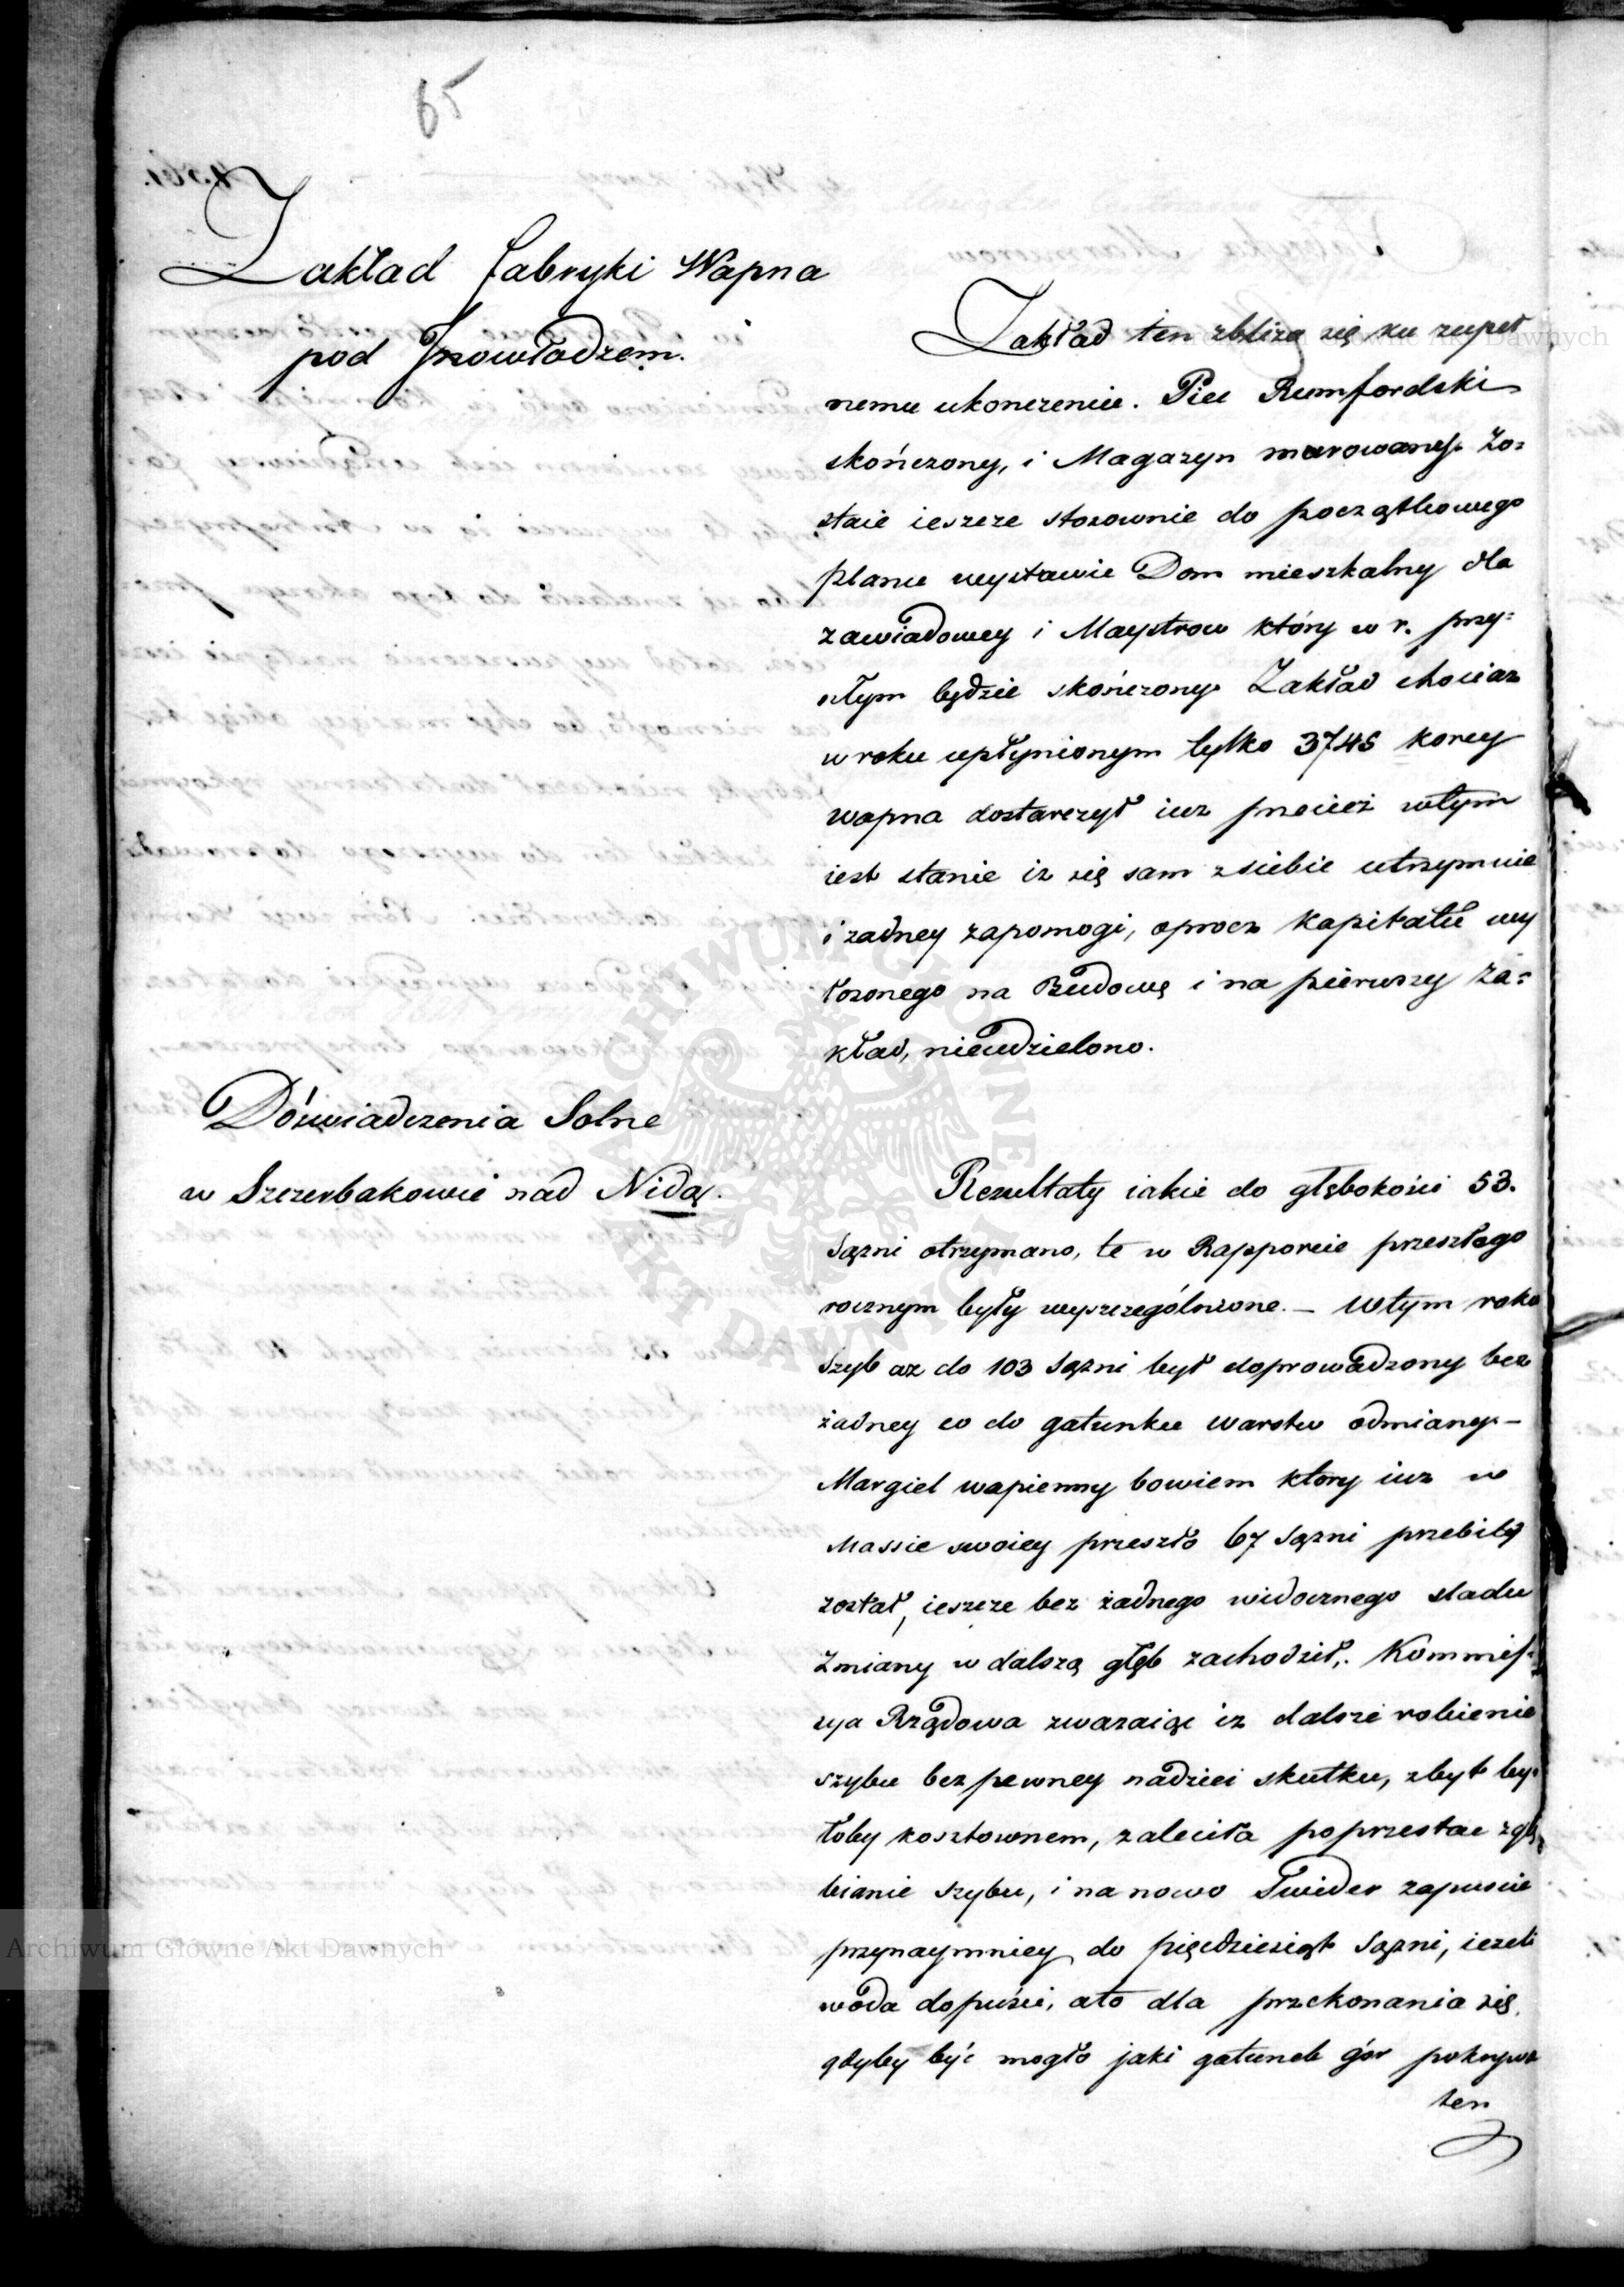 65
Zakład fabryki Wapna
pod Inowłodzem.
Zakład ten zbliza się ku zupeł
nemu ukonczeniu. Piec Rumfordski
skończony, i Magazyn murowany. Zo=
staie ieszcze stosownie do początkowego
planu wystawic Dom mieszkalny dla
zawiadowcy i Maystrow który w r. przy=
szłym będzie skończony. Zakład chociaz
w roku upłynionym tylko 3745 korcy
wapna dostarczył iuz przecież wtym
iest stanie iz się sam z siebie utrzymuie
i zadney zapomogi, oprocz kapitału wy
łozonego na Budowę i na pierwszy za=
kład, nieudzielono.
Doświadczenia Solne
w Szczerbakowie nad Nidą.
Rezultaty iakie do głębokości 53.
Sązni otrzymano, te w Rapporcie przeszłego
rocznym były wyszczególnione. – Wtym roku
Szyb az do 103 Sązni był doprowadzony bez
żadney co do gatunku warstw odmiany. –
Margiel wapienny bowiem ktory iuz w
Massie swoiey przeszło 67 Sązni przebity
został, ieszcze bez żadnego widocznego sladu
Zmiany w dalszą głęb zachodził. Kommis=
sya Rządowa zwazaiąc iz dalsze robienie
szybu bez pewney nadziei skutku, zbyt by=
łoby kosztownem, zaleciła poprzestac zgłę=
bianie szybu, i na nowo Swider zapuscic
przynaymniey do pięcdziesiąt Sązni, iezeli
woda dopuści, ato dla przekonania się,
gdyby być mogło jaki gatunek gór pokrywa
ten
Archiwum Główne Akt Dawnych
Archiwum Główne Akt Dawnych
ARCHIWUM GŁÓWNE
AKT DAWNYCH